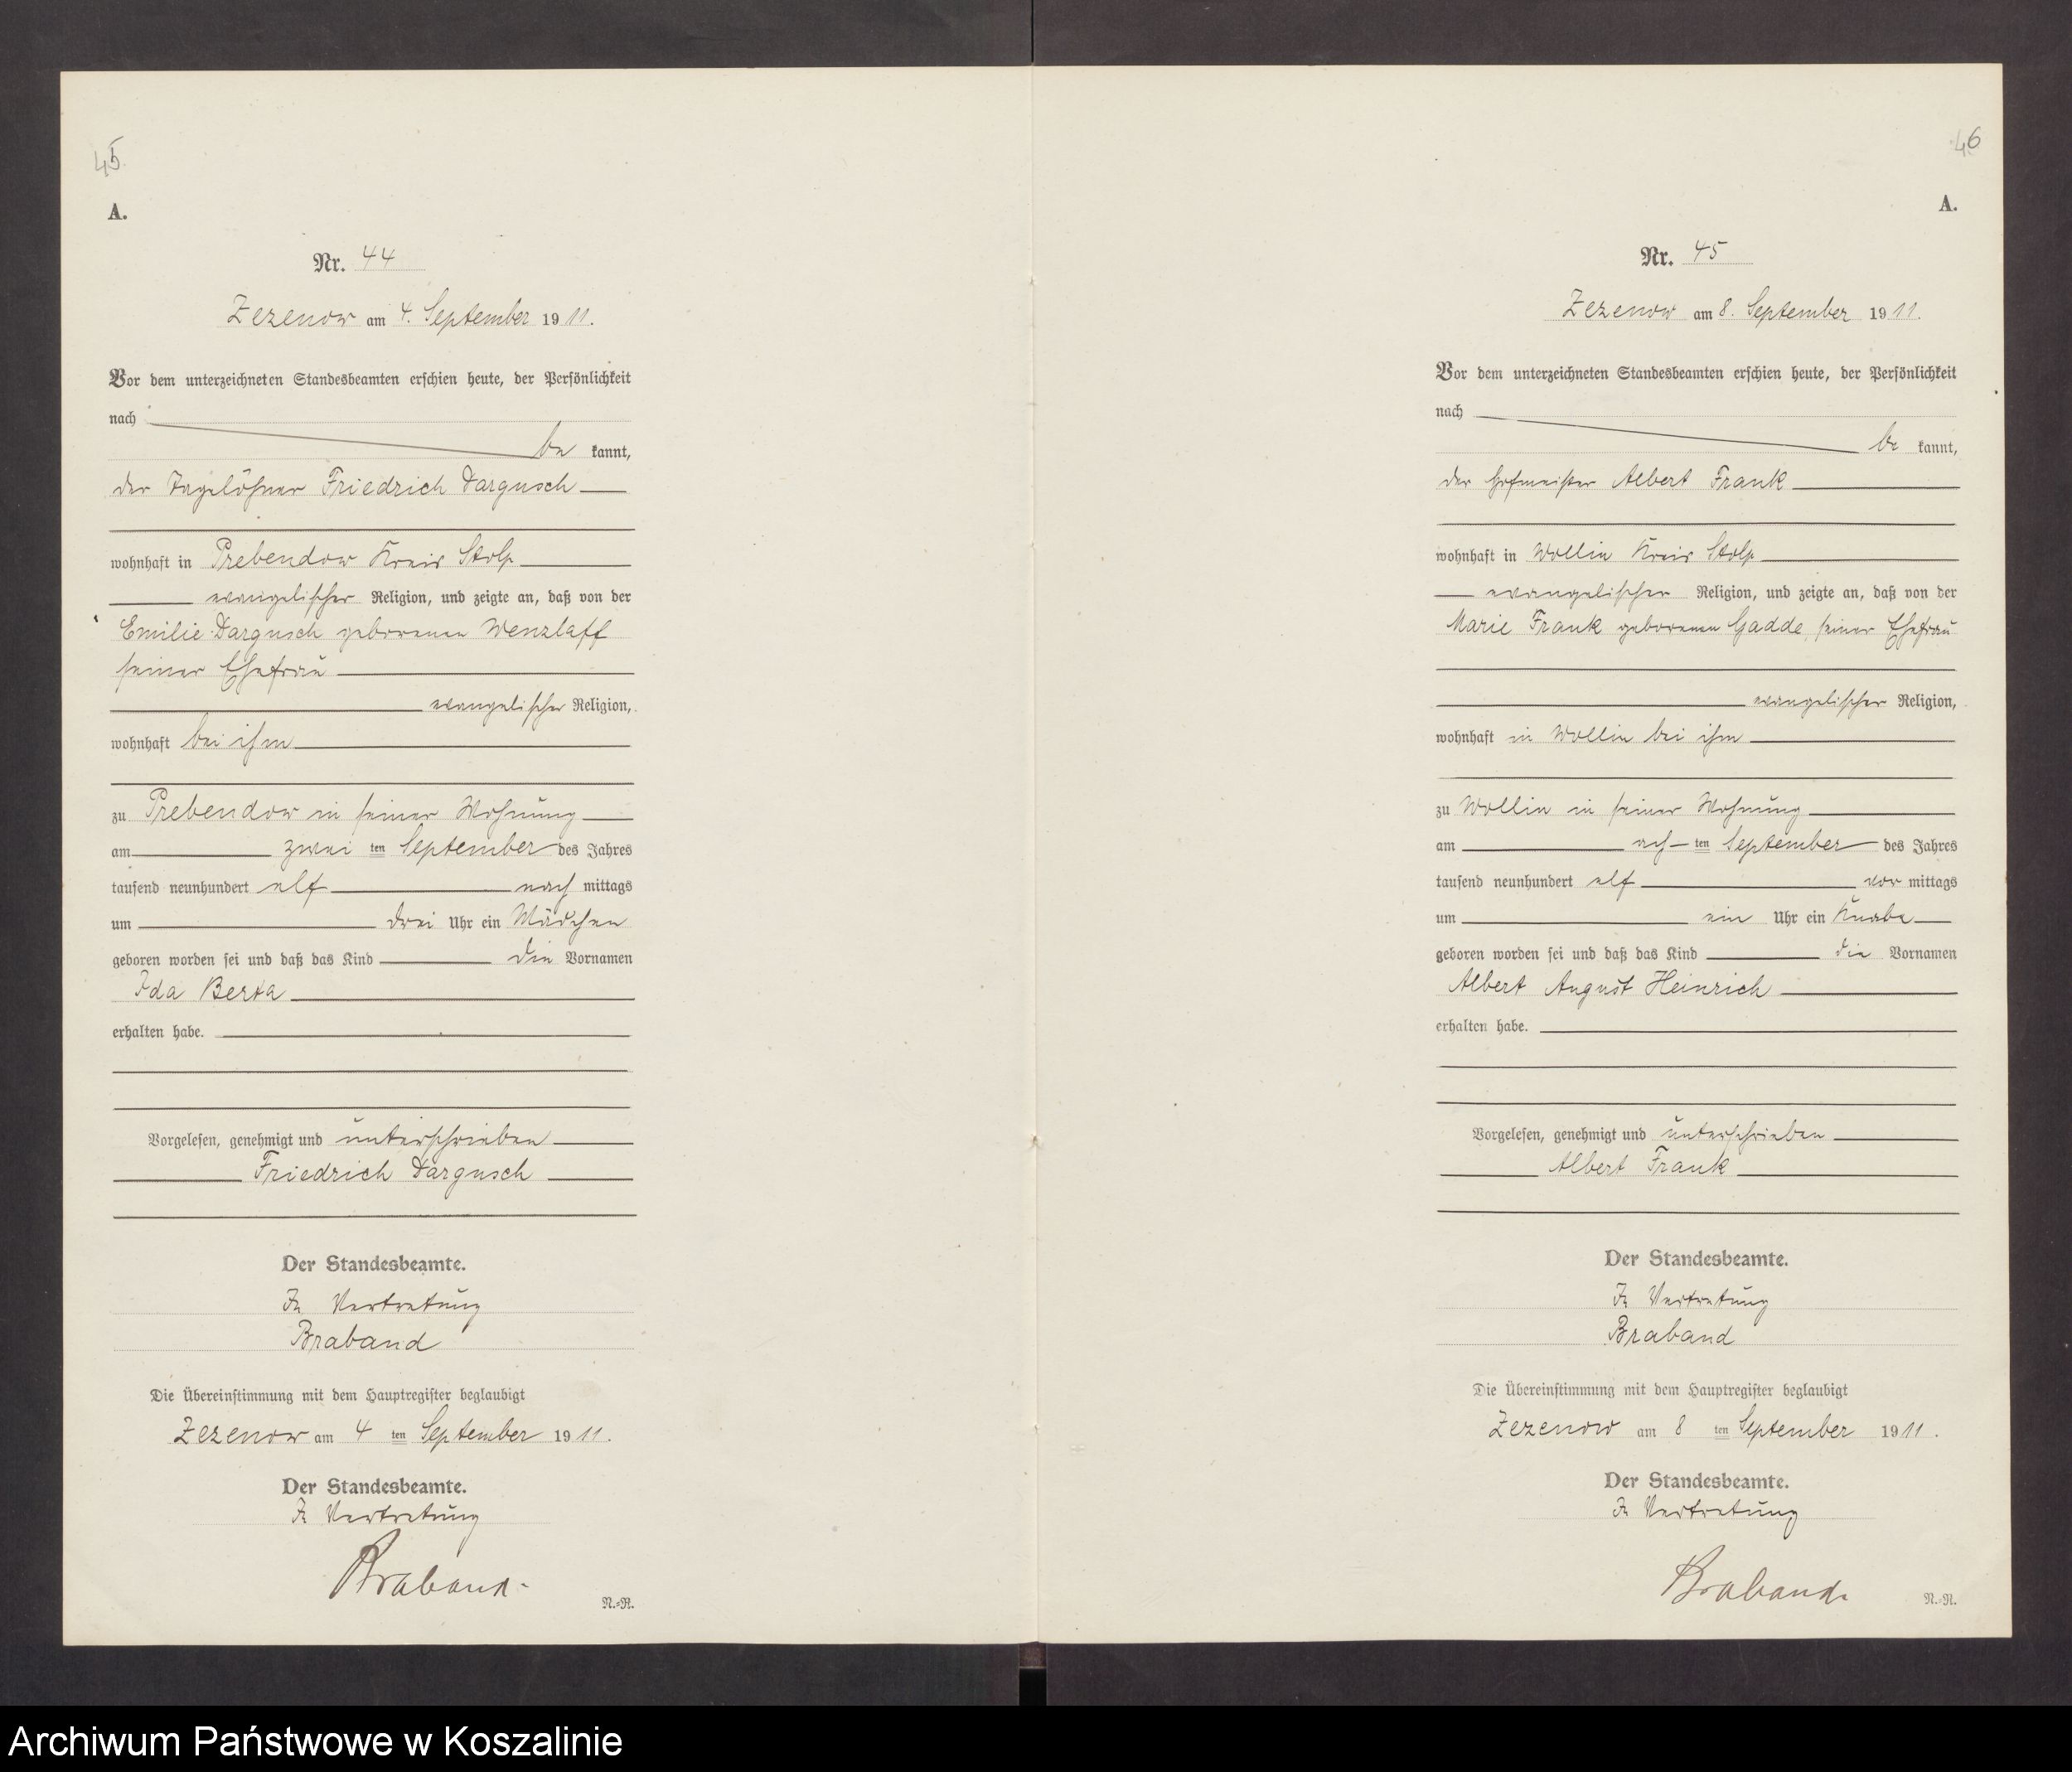 45
A.
Nr. 44
Zezenow am 4. September 1911.
Vor dem unterzeichneten Standesbeamten erschien heute, der Persönlichkeit
nach
be kannt,
der Tagelöhner Friedrich Dargusch
wohnhaft in Prebendow Kreis Stolp
evangelischer Religion, und zeigte an, daß von der
Emilie Dargusch geborenen Wenzlaff
seiner Ehefrau
evangelischer Religion,
wohnhaft bei ihm
zu Prebendow in seiner Wohnung
am zwei ten September des Jahres
tausend neunhundert elf nach mittags
um drei Uhr ein Mädchen
geboren worden sei und daß das Kind die Vornamen
Ida Berta
erhalten habe.
Vorgelesen, genehmigt und unterschrieben
Friedrich Dargusch
Der Standesbeamte.
In Vertretung
Braband
Die Übereinstimmung mit dem Hauptregister beglaubigt
Zezenow am 4 ten September 1911.
Der Standesbeamte.
In Vertretung
Braband
N.=R.
46
A.
Nr. 45
Zezenow am 8. September 1911.
Vor dem unterzeichneten Standesbeamten erschien heute, der Persönlichkeit
nach
be kannt,
der Hofmeister Albert Frank
wohnhaft in Wollin Kreis Stolp
evangelischer Religion, und zeigte an, daß von der
Marie Frank geborenen Gadde, seiner Ehefrau
evangelischer Religion,
wohnhaft in Wollin bei ihm
zu Wollin in seiner Wohnung
am ach ten September des Jahres
tausend neunhundert elf vor mittags
um ein Uhr ein Knabe
geboren worden sei und daß das Kind die Vornamen
Albert August Heinrich
erhalten habe.
Vorgelesen, genehmigt und unterschrieben
Albert Frank
Der Standesbeamte.
In Vertretung
Braband
Die Übereinstimmung mit dem Hauptregister beglaubigt
Zezenow am 8 ten September 1911.
Der Standesbeamte.
In Vertretung
Braband
N.=R.
Archiwum Państwowe w Koszalinie